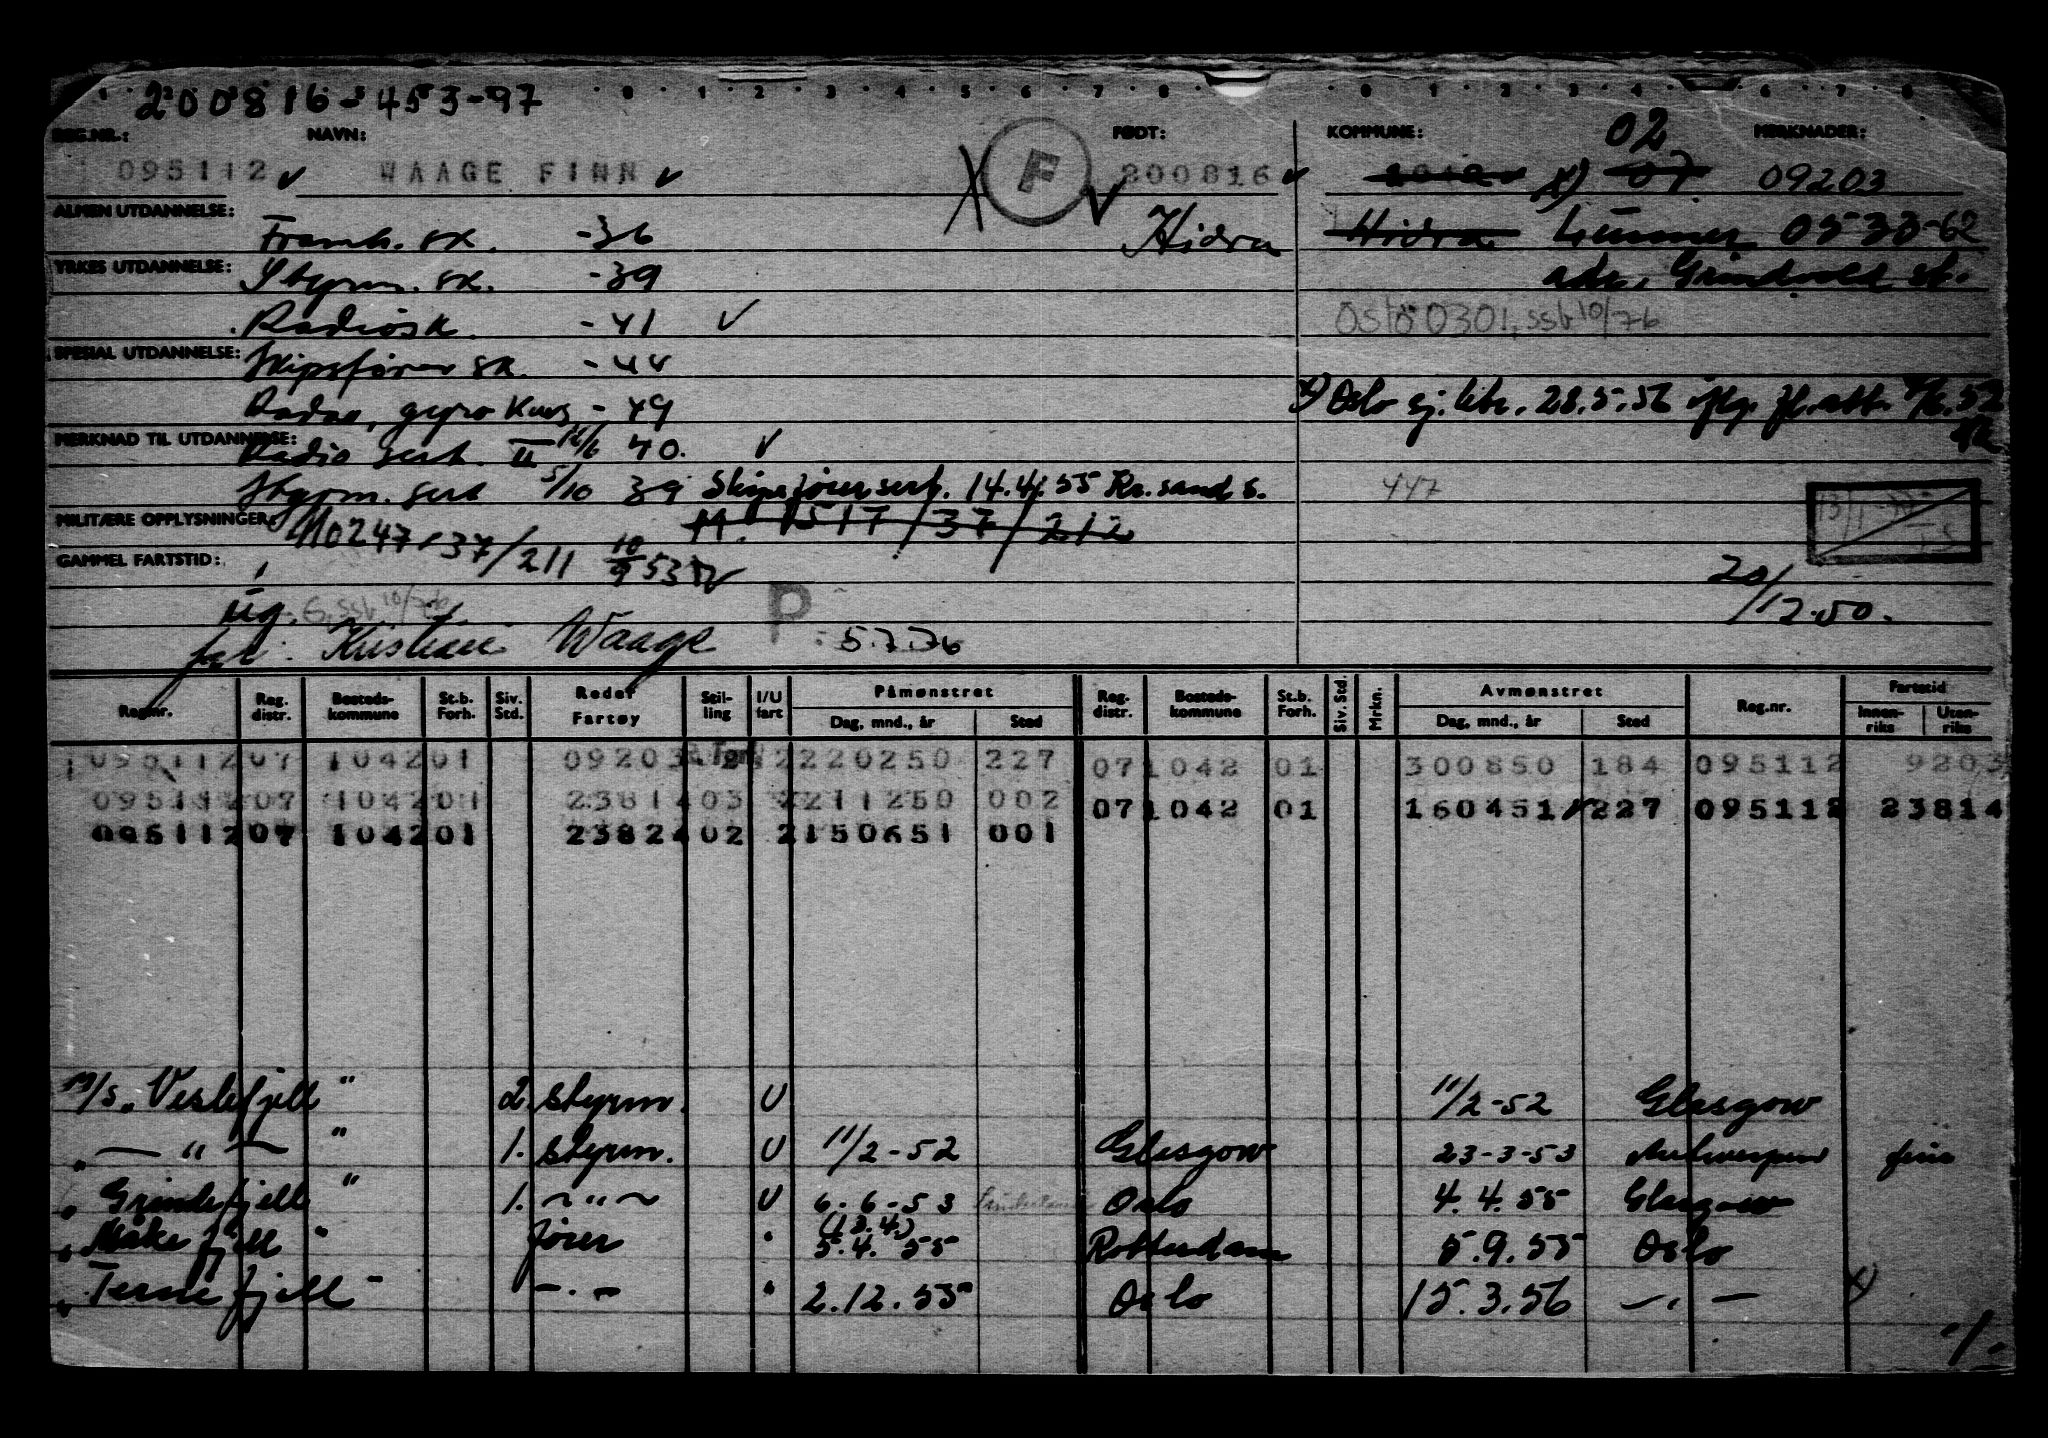 200816-453-97
REG.NR.: NAVN: FØDT: KOMMUNE: 02 MERKNADER:
095112 WAAGE FINN F 200816 x) 07 09203
ALMEN UTDANNELSE: Framh. sk. -36 Hidra Hidra 0533-62
YRKES UTDANNELSE: Styrm. sk. -39 adr. Grindvold st.
Radiosk. -41 Oslo 0301, ssb 10/76
SPESIAL UTDANNELSE: Skipsfører sk. -44
Radar, gyro kurs -49 x) Oslo sj. 28.5.56
MERKNAD TIL UTDANNELSE: Radio sert. II 12/6 40.
Styrm. sert 5/10 39 Skipsførersert. 14.4.55 Kr.sand S. 447
MILITÆRE OPPLYSNINGER: 10247-37/211 10/9 53 M. 1517/37/212
GAMMEL FARTSTID: 20/12.50.
ug. G. ssb 10/76 P
far: Kristian Waage 5.7.76
Regnr. Reg. distr. Bosteds-kommune St.b. Forh. Siv. Std. Reder Fartøy Stilling I/U fart Påmønstret Dag, mnd., år Sted Reg. distr. Bosteds-kommune St.b. Forh. Siv. Std. Mrkn. Avmønstret Dag, mnd., år Sted Reg.nr. Fartstid Innen-riks Uten-riks
095112 07 1042 01 09203 2 220250 227 07 1042 01 300850 184 095112 9203
095112 07 1042 01 23814 03 2 211250 002 07 1042 01 160451 227 095112 23814
095112 07 1042 01 2382 02 2 150651 001
M/S. Veslefjell " 2. styrm. U 11/2-52 Glasgow
" — " — " 1. styrm. U 11/2-52 Glasgow 23-3-53 Antwerpen
" Grindefjell " 1. ~ " ~ U 6.6-53 Oslo 4.4.55 Glasgow
" Måkefjell " fører " (13.4.) 5.4.55 Rotterdam 5.9.55 Oslo
" Ternefjell - — . — " 2.12.55 Oslo 15.3.56 — . — x)
./.